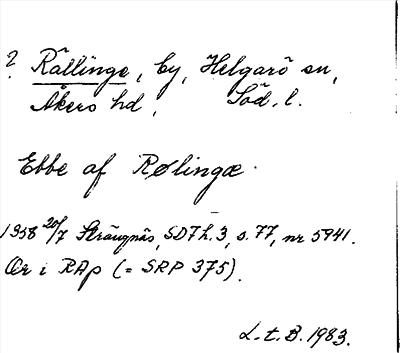 ? Rällinge, by, Helgarö sn,
Åkers hd, Söd. l.
Ebbe af Rølingæ.
1358 20/7 Strängnäs, SD 7 h. 3, s. 77, nr 5941.
Or i RAp (= SRP 375).
L. t. B. 1983.